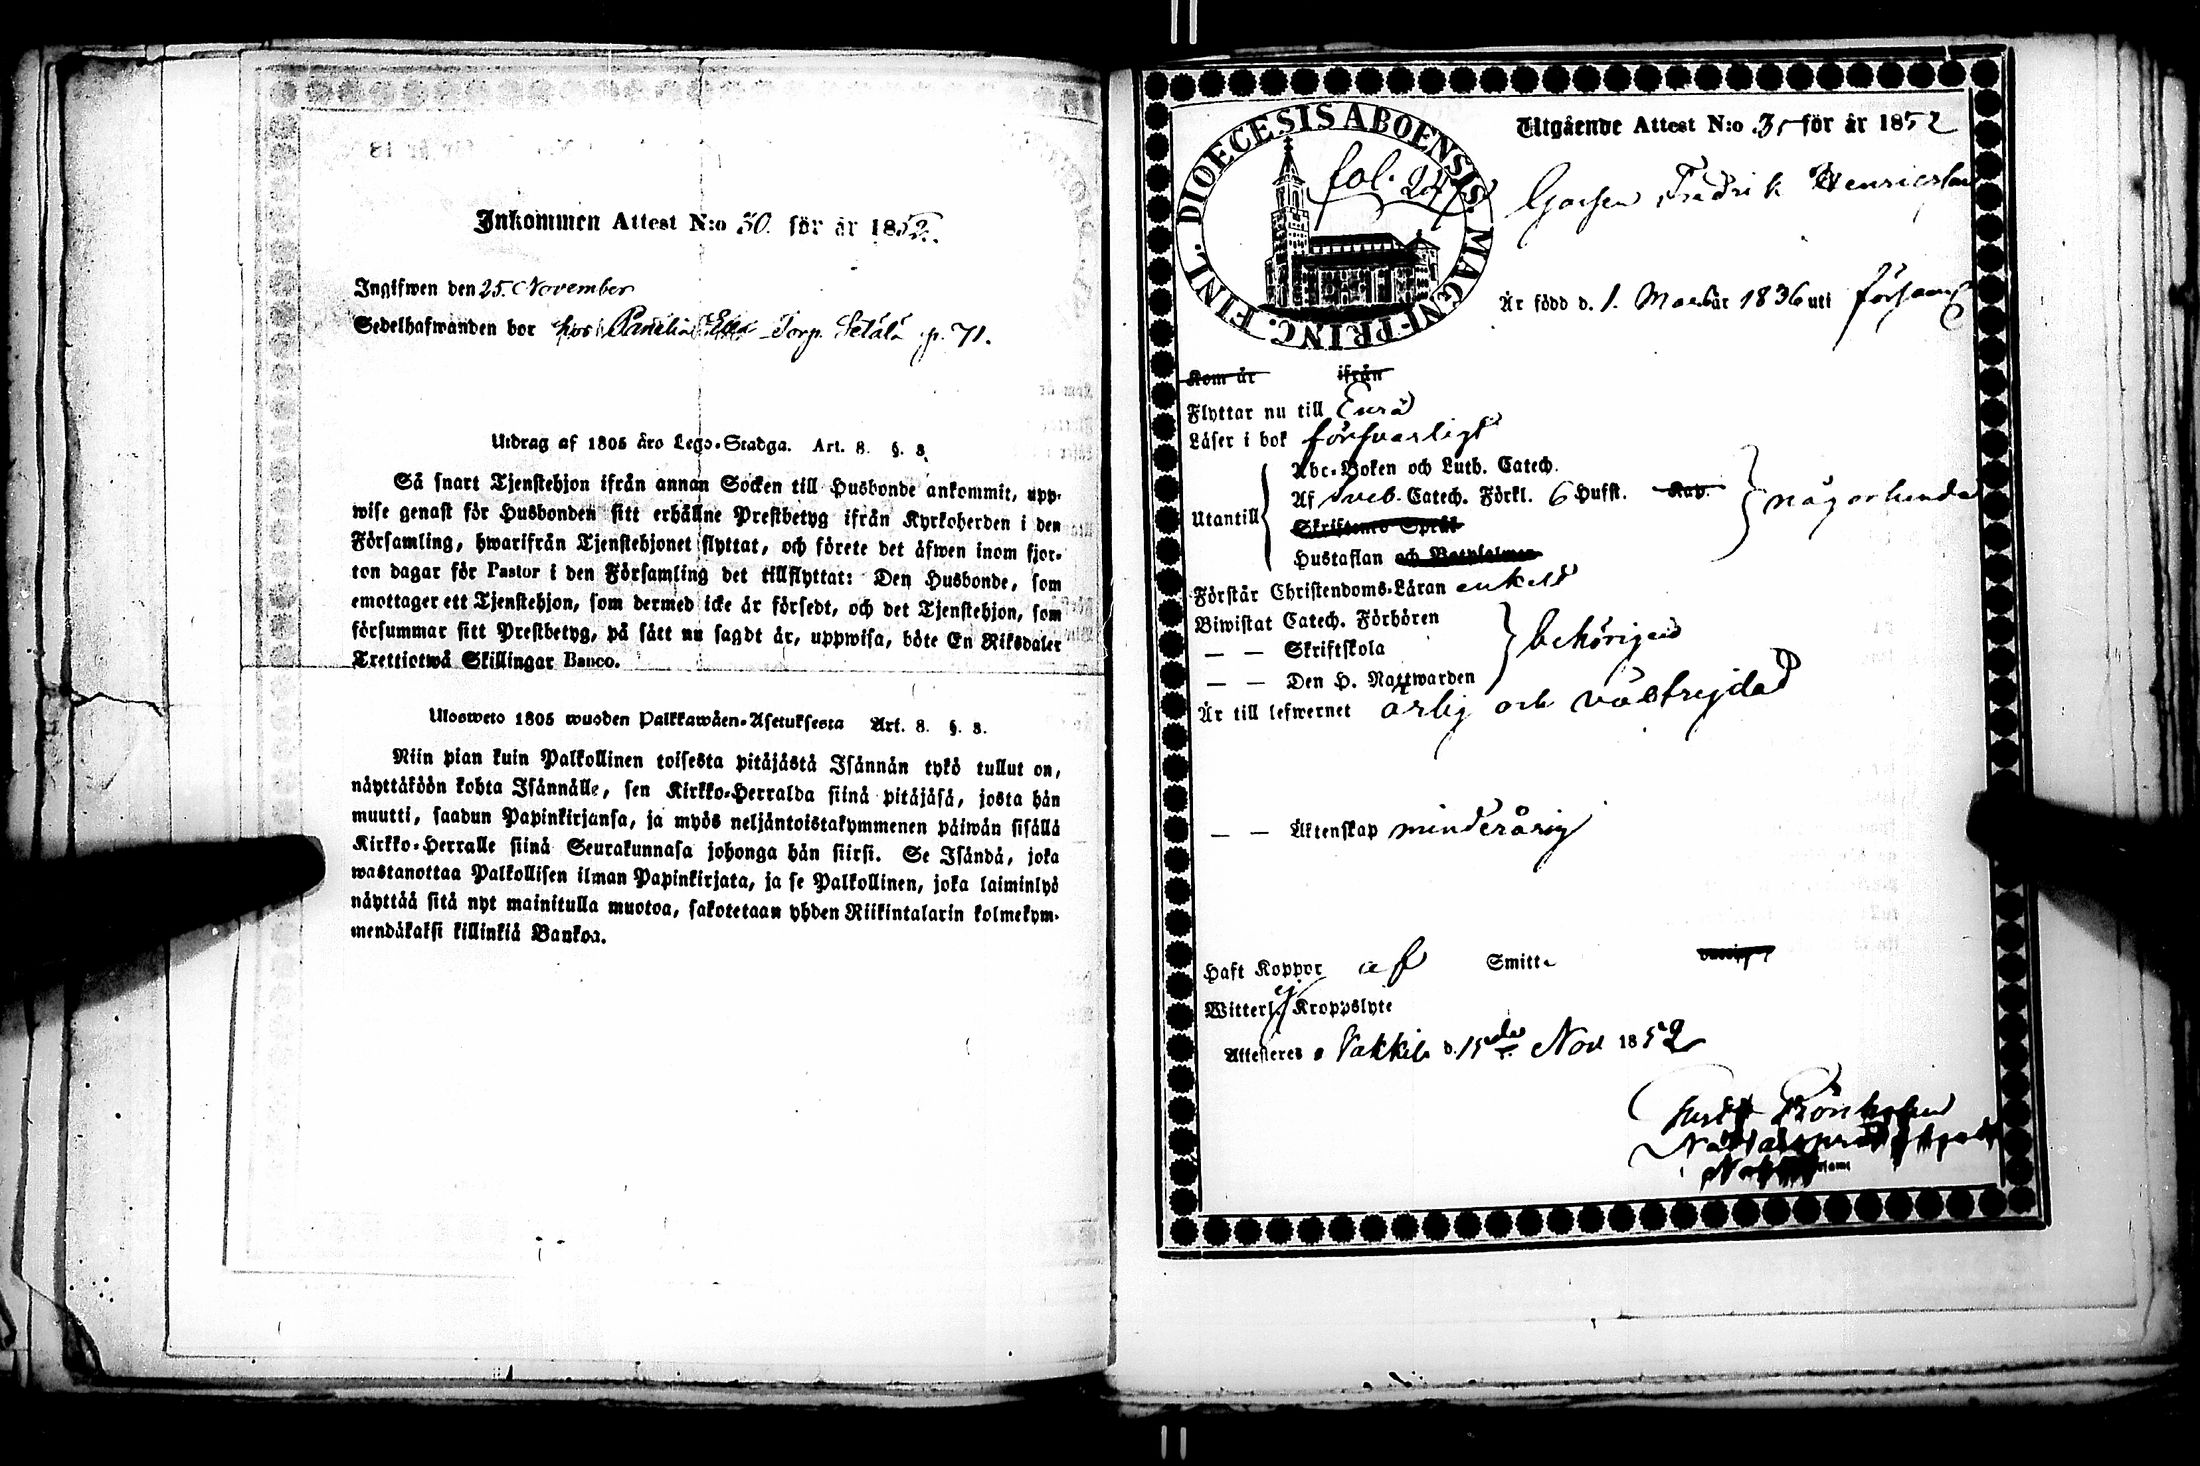 Inkommen Attest N:o 50. för år 1852.
Ingifwen den 25. November
Sedelhafwanden bor hos Torp. Setälä p. 71.
Utdrag af 1805 års Lego-Stadga. Art. 8. §. 8.
Så snart Tjenstehjon ifrån annan Socken till Husbonde ankommit, upp-
wise genast för Husbonden sitt erhållne Prestbetyg ifrån Kyrkoherden i den
Församling, hwarifrån Tjenstehjonet flyttat, och förete det äfwen inom fjor-
ton dagar för Pastor i den Församling det tillflyttat: Den Husbonde, som
emottager ett Tjenstehjon, som dermed icke är försedt, och det Tjenstehjon, som
försummar sitt Prestbetyg, på sätt nu sagdt är, uppwisa, böte En Riksdaler
Trettiotwå Skillingar Banco.
Ulosweto 1805 wuoden Palkkawäen-Asetuksesta Art. 8. §. 8.
Niin pian kuin Palkollinen toisesta pitäjästä Isännän tykö tullut on,
näyttäköön kohta Isännälle, sen Kirkko-Herralda siinä pitäjäsä, josta hän
muutti, saadun Papinkirjansa, ja myös neljäntoistakymmenen päiwän sisällä
Kirkko-Herralle siinä Seurakunnasa johonga hän siirsi. Se Isändä, joka
wastanottaa Palkollisen ilman Papinkirjata, ja se Palkollinen, joka laiminlyö
näyttää sitä nyt mainitulla muotoa, sakotetaan yhden Riikintalarin kolmekym-
mendäkaksi killinkiä Bankoa.
DIOECESIS ABOENSIS. MAGNI PRINC. FINL.
fol. 247
Utgående Attest N:o 31 för år 1852
Gossen Fredrik Henricsson
Är född d. 1. Mars år 1836 uti församl
Kom år ifrån
Flyttar nu till Eura
Läser i bok försvarligt
Utantill
Abc-Boken och Luth. Catech.
Af Sveb. Catech. Förkl. 6 Hufst. Kap. någorlunda
Skriftenes Språk
Hustaflan och Botpsalmer
Förstår Christendoms-Läran enkelt
Biwistat Catech. Förhören
— — Skriftskola behörigen
— — Den H. Nattwarden
Är till lefwernet ärlig och välfrejdad
— — Äktenskap minderårig
Haft Koppor af Smitta
Witterl. ej Kroppslyte
Attesteras d. 15de Nov 1852